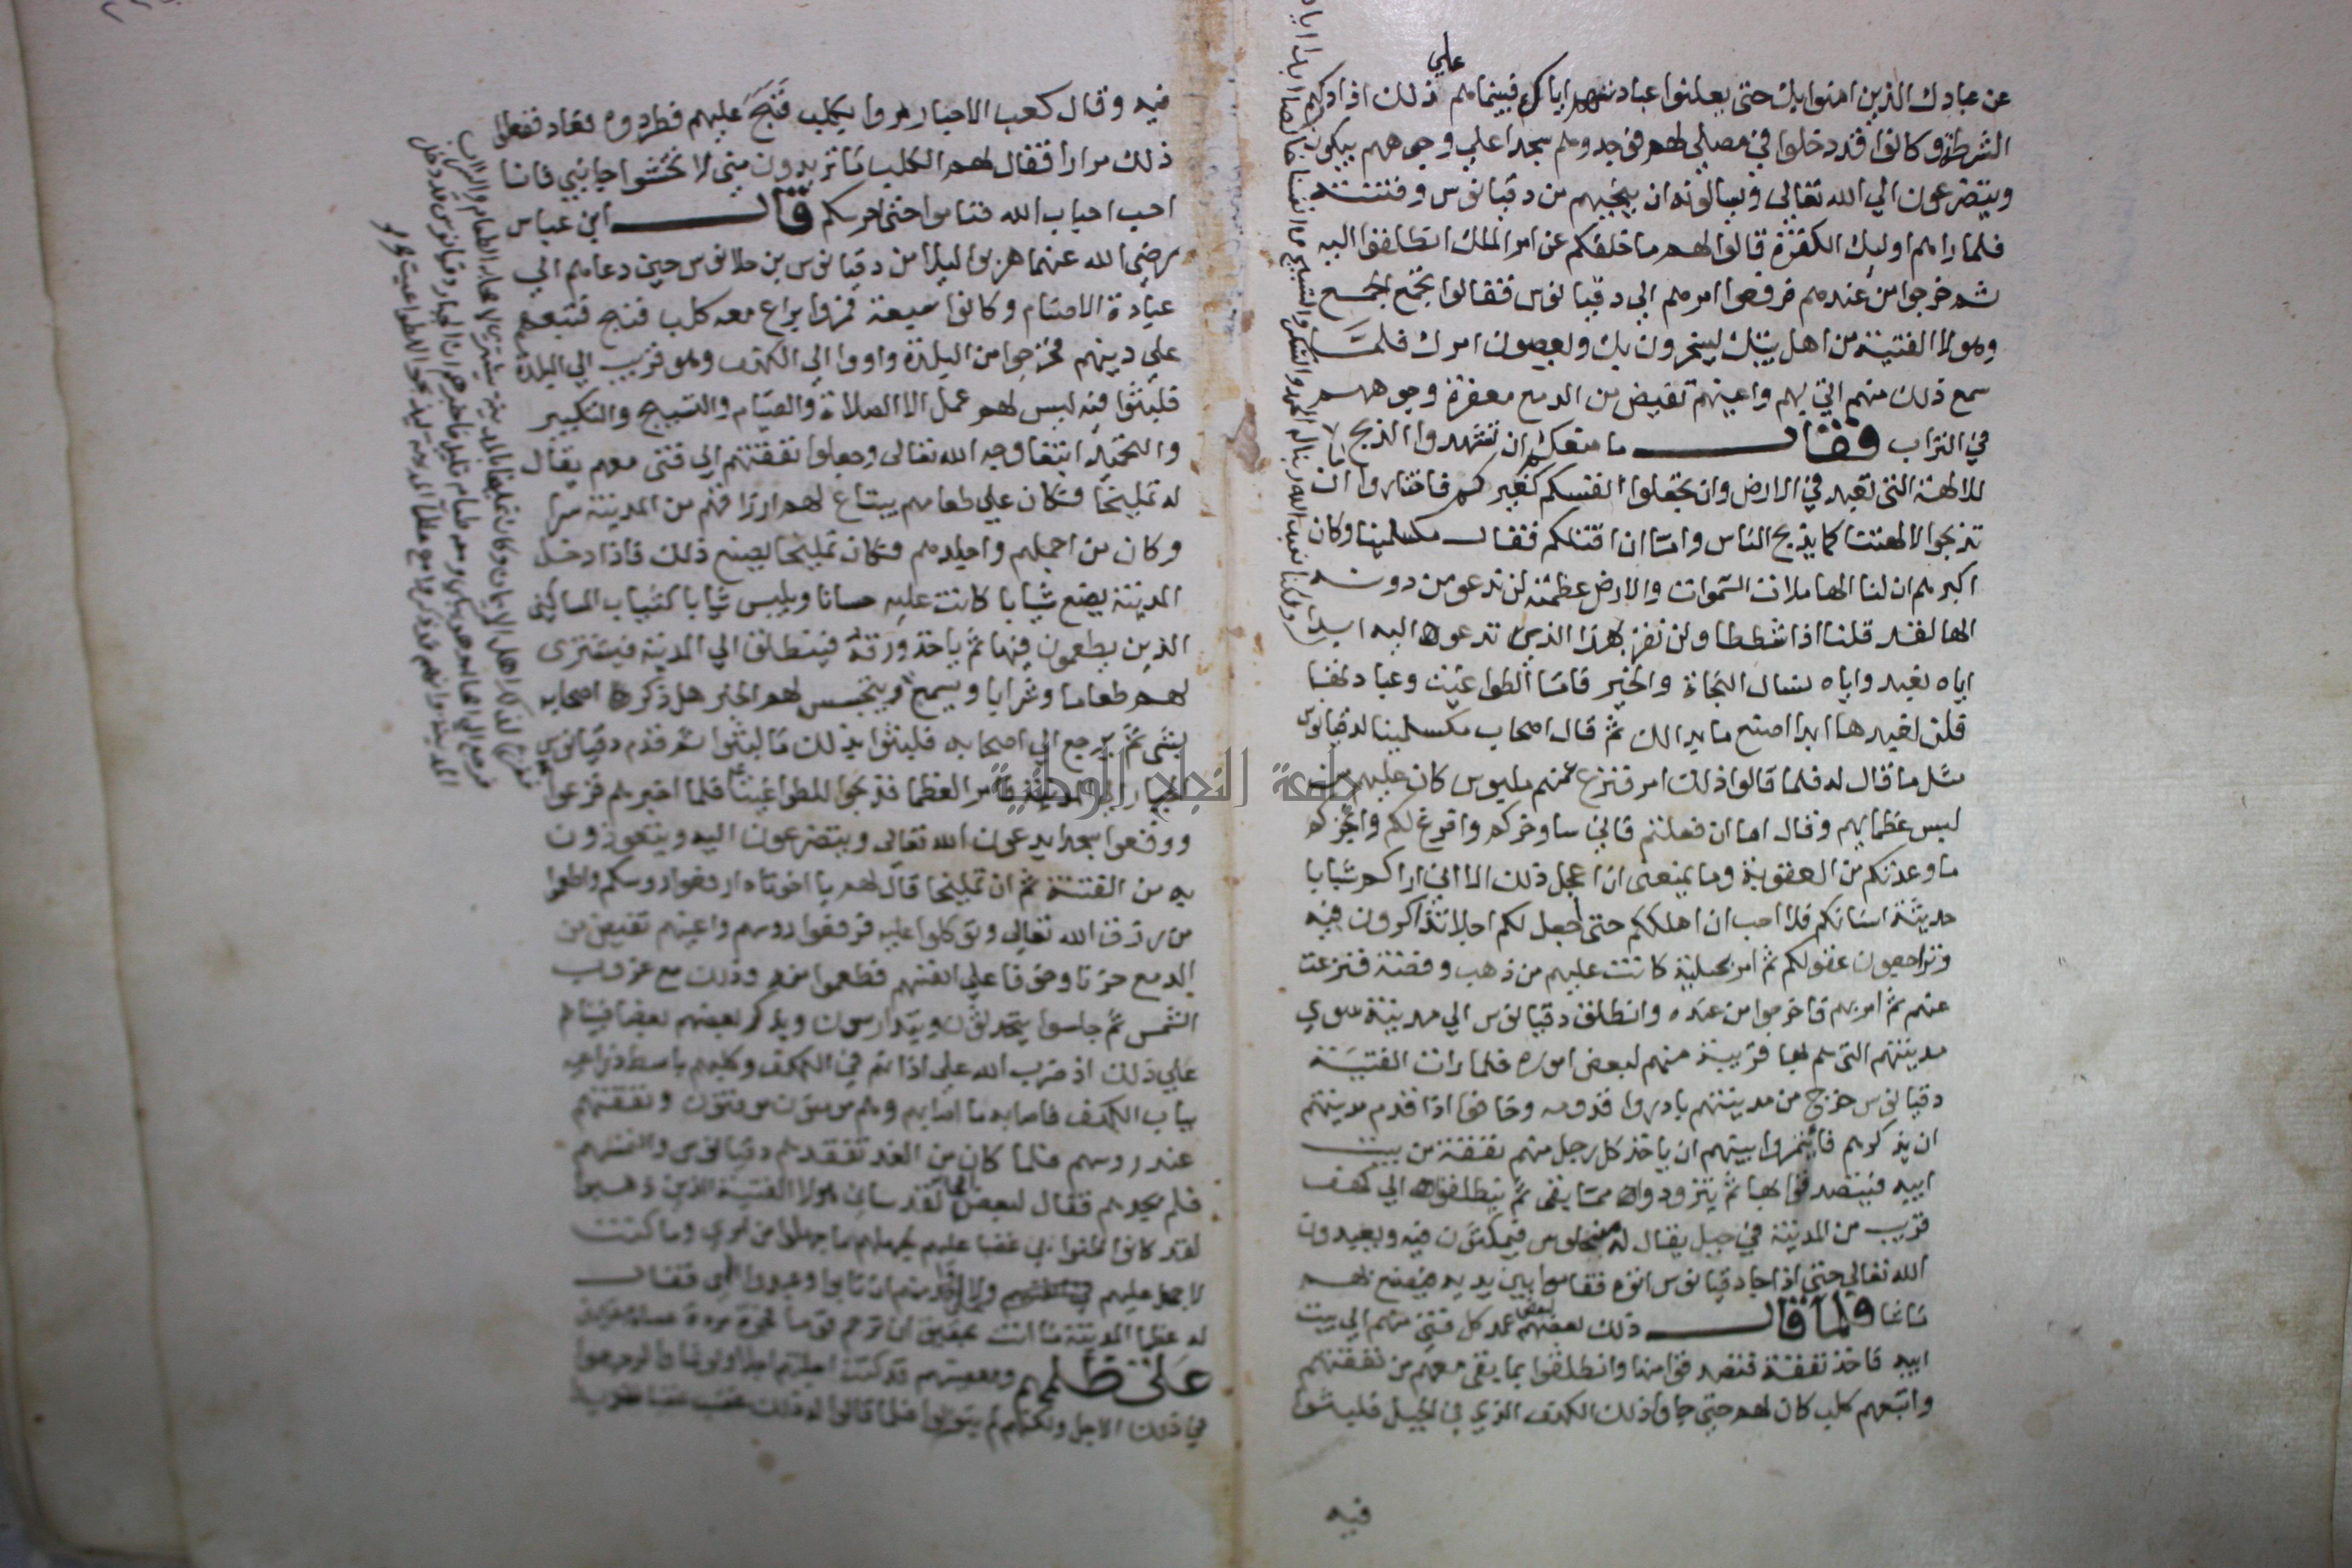 عن عبادك الذين امنوا بك حتى يعلنوا عبادتهم اياك فبينما هم علي ذلك اذ ادركهم
الشرطة وكانوا قد دخلوا في مصلي لهم فوجدوهم سجدا علي وجوههم يبكون
ويتضرعون الي الله تعالى ويسالونه ان ينجيهم من دقيانوس وفتنته
فلما راهم اوليك الكفرة قالوا لهم ما خلفكم عن امر الملك انطلقوا اليه
ثم خرجوا من عندهم فرفعوا امرهم الي دقيانوس فقالوا تجمع الجمع
وهولا الفتية من اهل بيتك يسخرون بك ويعصون امرك فلما
سمع ذلك منهم اتي بهم واعينهم تفيض من الدمع معفرة وجوههم
في التراب فقال ما منعكم ان تشهدوا الذبح
للالهة التي تعبد في الارض وان تجعلوا انفسكم كغيركم فاختاروا اما ان
تذبحوا لالهتنا كما يذبح الناس واما ان اقتلكم فقال مكسلمينا وكان
اكبرهم ان لنا الها ملات السموات والارض عظمته لن ندعو من دونه
الها لقد قلنا اذا شططا ولن نقر بهذا الذي تدعونا اليه ابدا
اياه نعبد واياه نسال النجاة والخير فاما الطواغيت وعبادتها
فلن نعبدها ابدا اصنع ما بدا لك ثم قال اصحاب مكسلمينا لدقيانوس
مثل ما قال له فلما قالوا ذلك امر فنزع عنهم ملبوس كان عليهم من
لبس عظمائهم وقال اما ان فعلتم فاني ساوخركم وافرغ لكم وانجزكم
ما وعدتكم من العقوبة وما يمنعني ان اعجل ذلك الا اني اراكم شبابا
حديثة اسنانكم فلا احب ان اهلككم حتى اجعل لكم اجلا تذاكرون فيه
وتراجعون عقولكم ثم امر بحلية كانت عليهم من ذهب وفضة فنزعت
عنهم ثم امر بهم فاخرجوا من عنده وانطلق دقيانوس الي مدينة سوي
مدينتهم التي هم بها قريبة منهم لبعض اموره فلما رات الفتية
دقيانوس خرج من مدينتهم بادروا قدومه وخافوا اذا قدم مدينتهم
ان يذكرهم فأتمروا بينهم ان ياخذ كل رجل منهم نفقة من بيت
ابيه فيتصدقوا بها ثم يتزودوا مما بقى ثم ينطلقوا الي كهف
قريب من المدينة في جبل يقال له منجلوس فيمكثون فيه ويعبدون
الله تعالي حتى اذا جا دقيانوس اتوه فقاموا بين يديه فيصنع بهم
ما شا فلما قال ذلك بعضهم لبعض عمد كل فتى منهم الي بيت
ابيه فاخذ نفقة فتصدقوا منها وانطلقوا بما بقي معهم من نفقتهم
واتبعهم كلب كان لهم حتى جاوا ذلك الكهف الذي في الجبل فلبثوا
فيه
فيه وقال كعب الاحبار مروا بكلب فنبح عليهم فطردوه فعاد ففعلوا
ذلك مرارا فقال لهم الكلب ما تريدون مني لا تخشوا جانبي فانا
احب احباب الله فناموا حتى احرسكم قال ابن عباس
رضي الله عنهما هربوا ليلا من دقيانوس بن حلانوس حين دعاهم الي
عبادة الاصنام وكانوا سبعة فمروا براع معه كلب فنبح فتبعهم
علي دينهم فخرجوا من البلدة واووا الي الكهف وهو قريب الي البلدة
فلبثوا فيه ليس لهم عمل الا الصلاة والصيام والتسبيح والتكبير
والتحميد ابتغا وجه الله تعالى وجعلوا نفقتهم الي فتى معهم يقال
له تمليخا فكان علي طعامهم يبتاع لهم ارزاقهم من المدينة سرا
وكان من اجملهم واجلدهم فكان تمليخا يصنع ذلك فاذا دخل
المدينة يضع ثيابا كانت عليه حسانا ويلبس ثيابا كثياب المساكين
الذين يطعمون فيها ثم ياخذ ورقة فينطلق الي المدينة فيشتري
لهم طعاما وشرابا ويسمع ويتجسس لهم الخبر هل ذكر اصحابه
بشي ثم يرجع الي اصحابه فلبثوا بذلك ما لبثوا ثم قدم دقيانوس
الجبار الي المدينة فامر العظما فذبحوا للطواغيت فلما اخبرهم فزعوا
ووقعوا سجدا يدعون الله تعالى ويتضرعون اليه ويتعوذون
به من الفتنة ثم ان تمليخا قال لهم يا اخوتاه ارفعوا روسكم واطعموا
من رزق الله تعالى وتوكلوا عليه فرفعوا روسهم واعينهم تفيض من
الدمع حزنا وخوفا علي انفسهم فطعموا منه وذلك مع غروب
الشمس ثم جلسوا يتحدثون ويتدارسون ويذكر بعضهم بعضا فبينا هم
علي ذلك اذ ضرب الله علي اذانهم في الكهف وكلبهم باسط ذراعيه
بباب الكهف فاصابه ما اصابهم وهم مومنون موقنون ونفقتهم
عند روسهم فلما كان من الغد تفقدهم دقيانوس والتمسهم
فلم يجدهم فقال لبعض لقد ساني هولا الفتية الذين ذهبوا
لقد كانوا ظنوا بي غضبا عليهم لجهلهم ما جهلوا من امري وما كنت
لاجهل عليهم ان تابوا وعبدوا الهي فقال
له عظما المدينة ما انت بحقيق ان ترحم قوما فجرة مردة عصاة
علي ظلمهم ومعصيتهم قد كنت اجلتهم اجلا ولو شاوا لرجعوا
في ذلك الاجل ولكنهم لم يتوبوا فلما قالوا له ذلك غضب غضبا شديدا
جامعة النجاح الوطنية